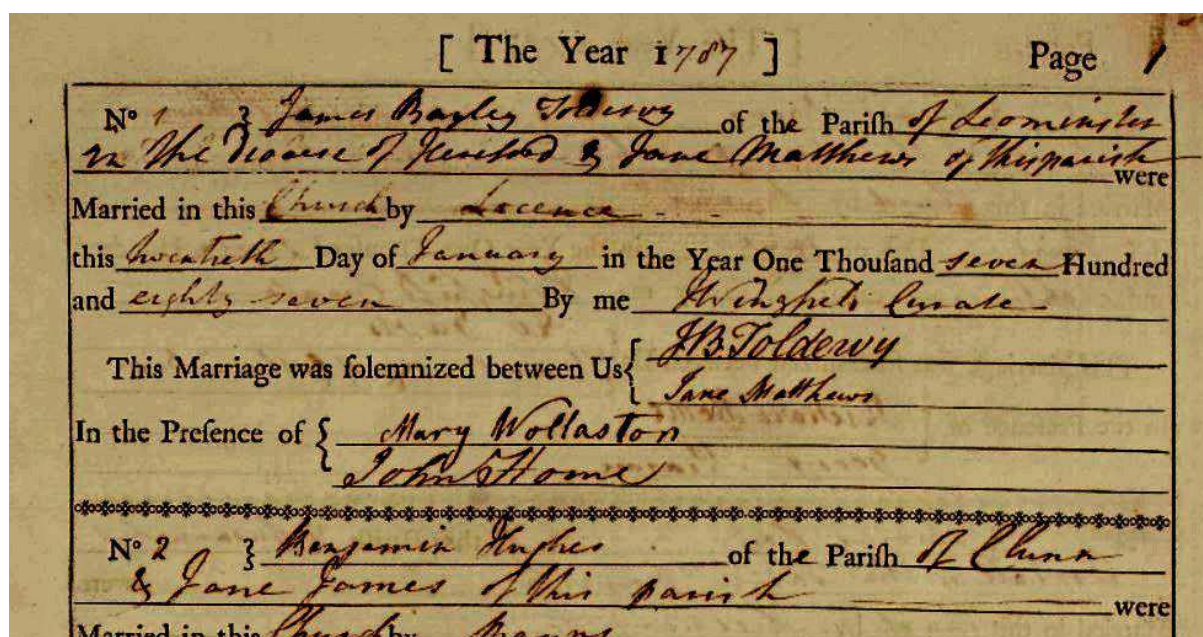 [ The Year 1787 ] Page 1
No 1 } James Bayley Toldewy of the Pariſh of Leominster
in the Diocese of Hereford & Jane Matthews of this parish
were
Married in this Church by Licence
this twentieth Day of January in the Year One Thouſand seven Hundred
and eighty seven By me Curate
This Marriage was ſolemnized between Us { JB Toldewy
Jane Matthews
In the Preſence of { Mary Wollaston
John Home
No 2 } Benjamin Hughes of the Pariſh of Clunn
& Jane James of this parish
were
Married in this Church by Banns